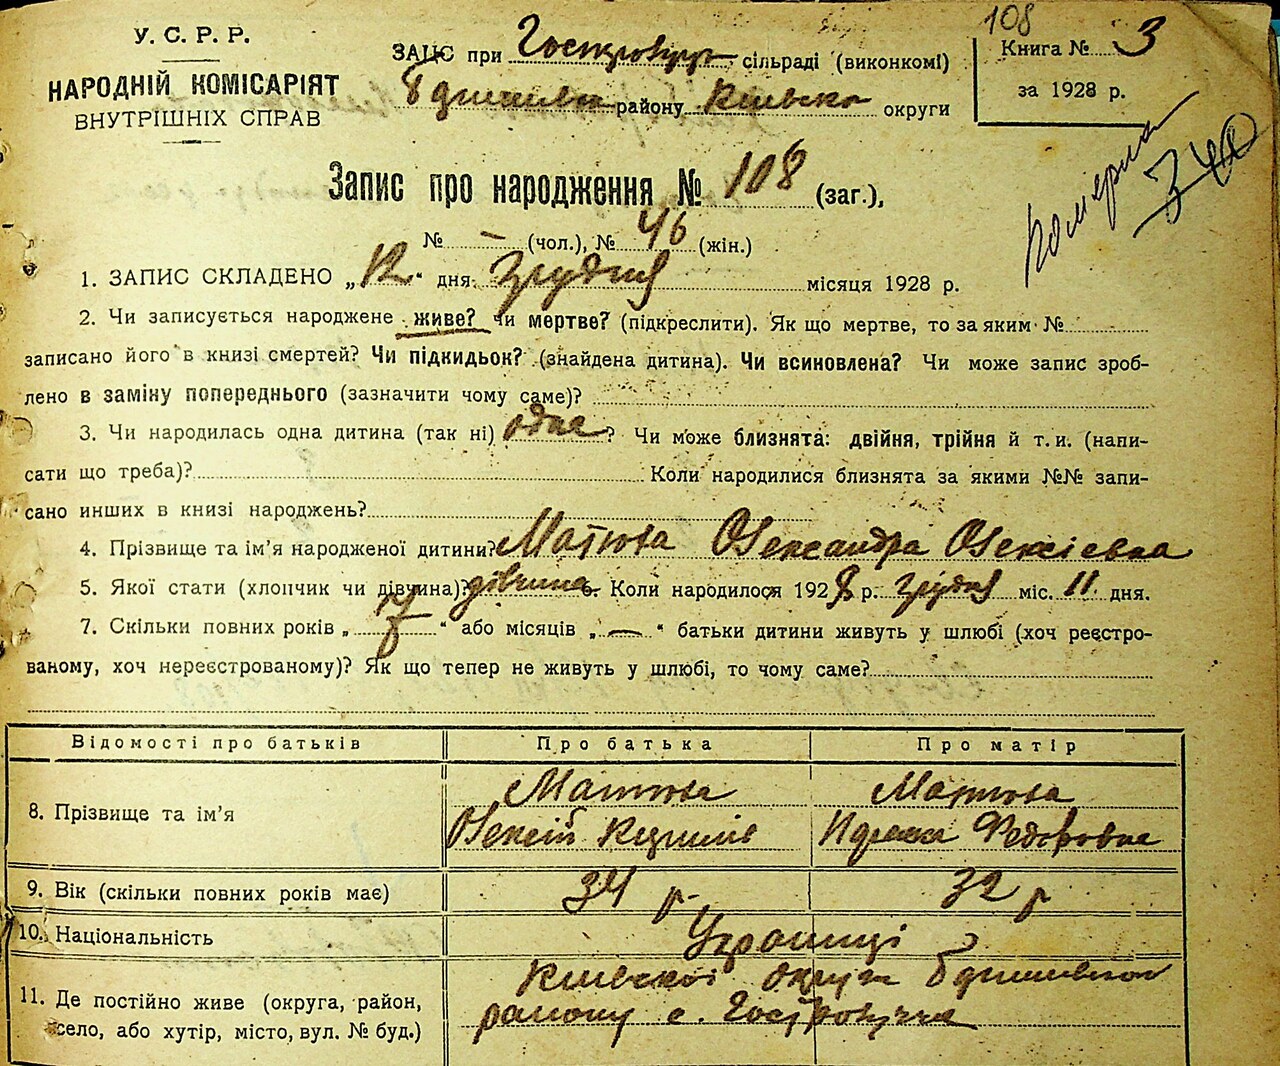 108
У. С. Р. Р.
НАРОДНІЙ КОМІСАРІЯТ
ВНУТРІШНІХ СПРАВ
ЗАЦС при сільраді (виконкомі)
району Київсько округи
Книга № 3
за 1928 р.
померла
Запис про народження № 108 (заг.),
№ – (чол.), № 46 (жін.)
1. ЗАПИС СКЛАДЕНО „12“ дня Грудня місяця 1928 р.
2. Чи записується народжене живе? чи мертве? (підкреслити). Як що мертве, то за яким №
записано його в книзі смертей? Чи підкидьок? (знайдена дитина). Чи всиновлена? Чи може запис зроб-
лено в заміну попереднього (зазначити чому саме)?
3. Чи народилась одна дитина (так ні) одна? Чи може близнята: двійня, трійня й т. и. (напи-
сати що треба)? Коли народилися близнята за якими №№ запи-
сано инших в книзі народжень?
4. Прізвище та ім’я народженої дитини? Олександра Олексієвна
5. Якої стати (хлопчик чи дівчина)? дівчина. Коли народилося 1928 р. грудня міс. 11 дня.
7. Скільки повних років „7“ або місяців „—“ батьки дитини живуть у шлюбі (хоч реєстро-
ваному, хоч нереєстрованому)? Як що тепер не живуть у шлюбі, то чому саме?
Відомості про батьків Про батька Про матір
8. Прізвище та ім’я
Олексій Федоровна
9. Вік (скільки повних років має) 34 р. 32 р
10. Національність Українці
11. Де постійно живе (округа, район,
село, або хутір, місто, вул. № буд.)
Київської округи
району с.